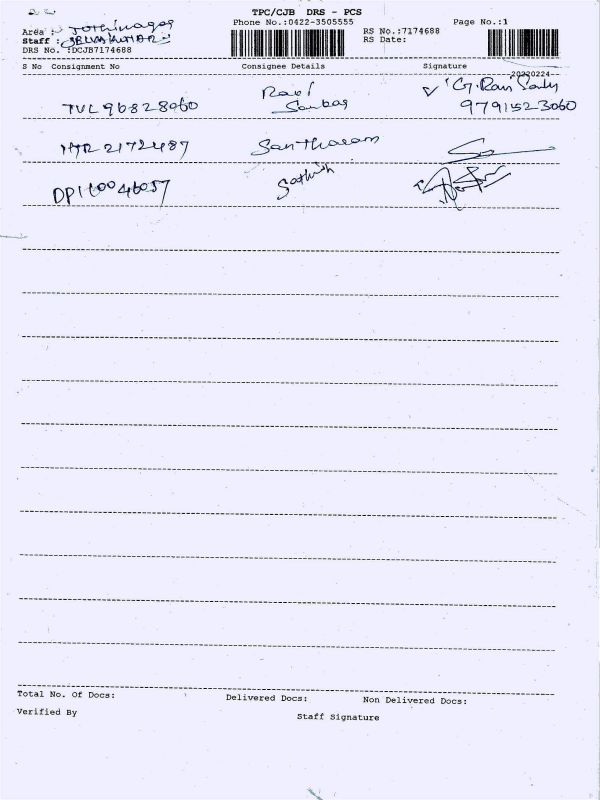 TPC/CJB DRS - PCS
Phone No.:0422-3505555 Page No.:1
Area : Jothinagar
RS No.:7174688
Staff : SELVAKUMAR
RS Date:
DRS No. :DCJB7174688
S No Consignment No Consignee Details Signature
20220224
TVL96828060 Ravi Sankar G. Ravi 9791523060
MTR2172487 Santharam
DPI10046057 Sathish
Total No. Of Docs: Delivered Docs: Non Delivered Docs:
Verified By Staff Signature